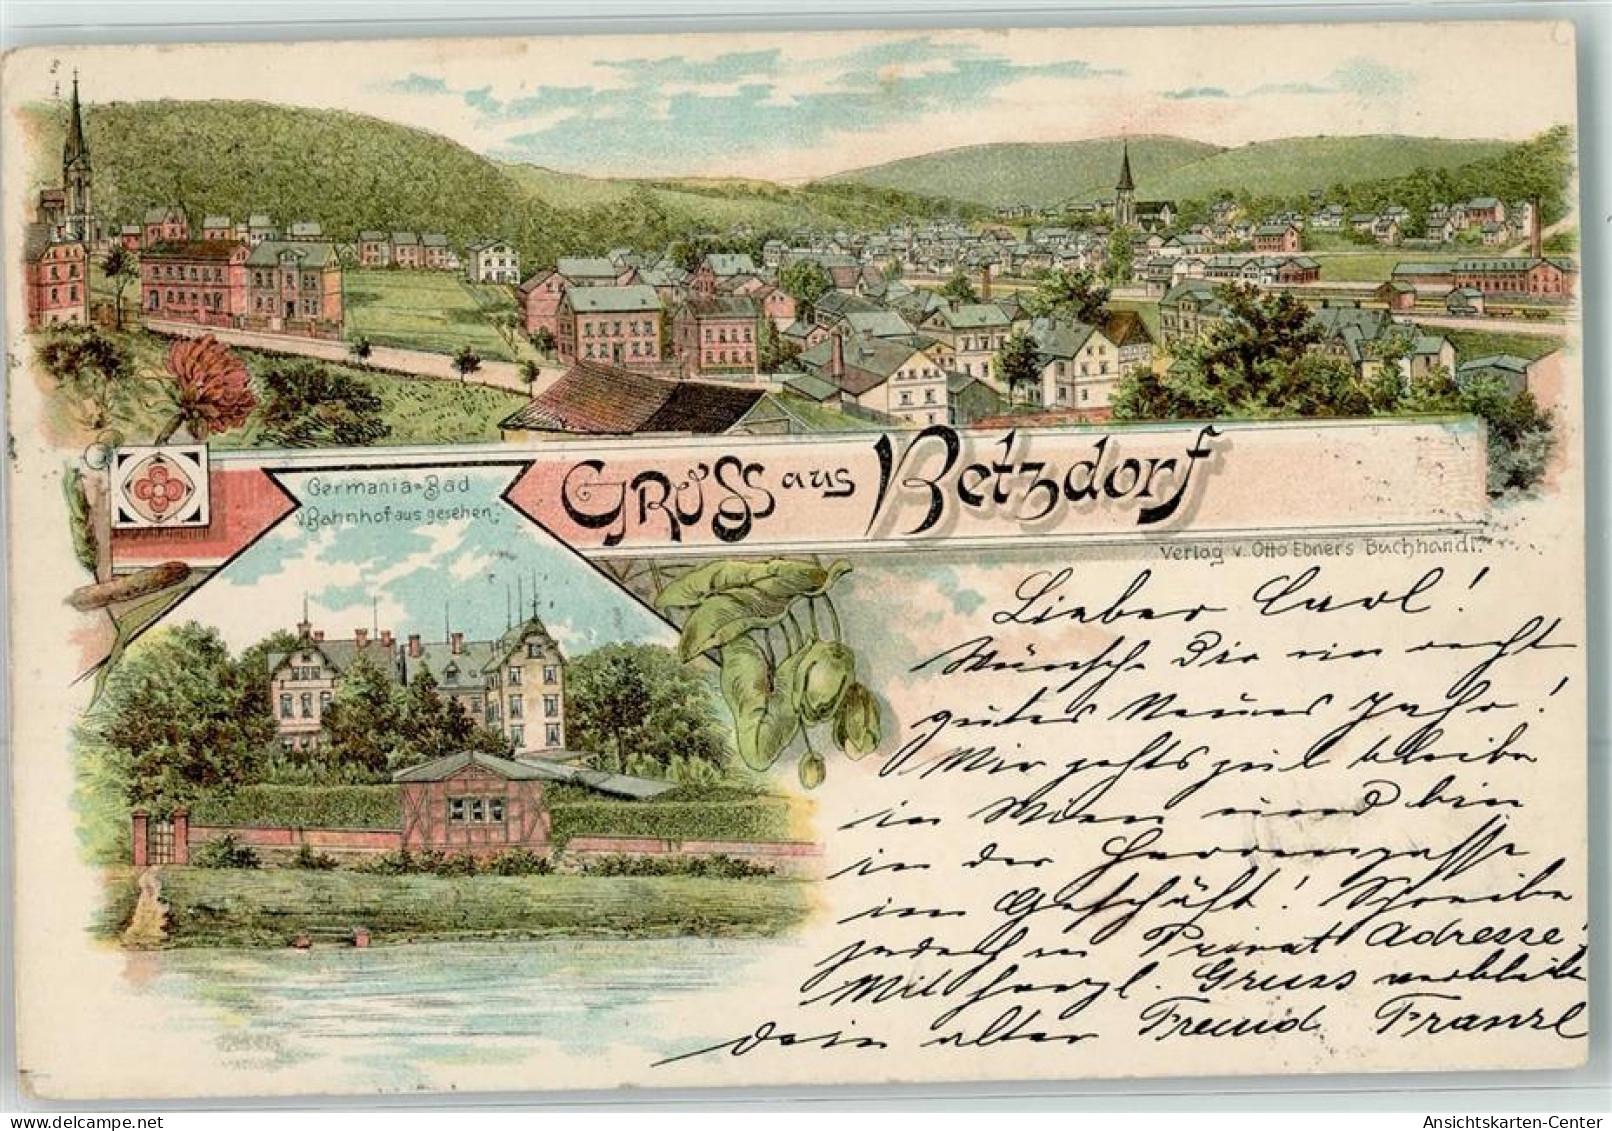 Germania-Bad
v. Bahnhof aus gesehen.
Gruss aus Betzdorf
Verlag v. Otto Ebners Buchhandl.
Lieber Carl!
Wünsche Dir ein recht
gutes Neues Jahr!
Mir gehts gut bleibe
in Wien und bin
in der Herrengasse
im Geschäft! Schreibe
jedoch in Privat Adresse.
Mit herzl. Gruss verbleibe
dein alter Freund Franzl
Ansichtskarten-Center